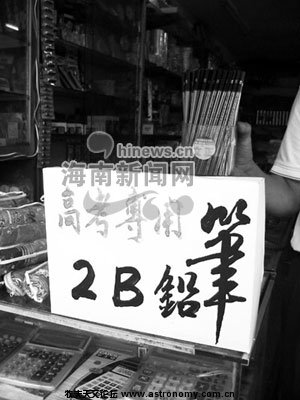 hinews.cn
海南新闻网
高考专用
2B鉛筆
牧夫天文论坛 www.astronomy.com.cn